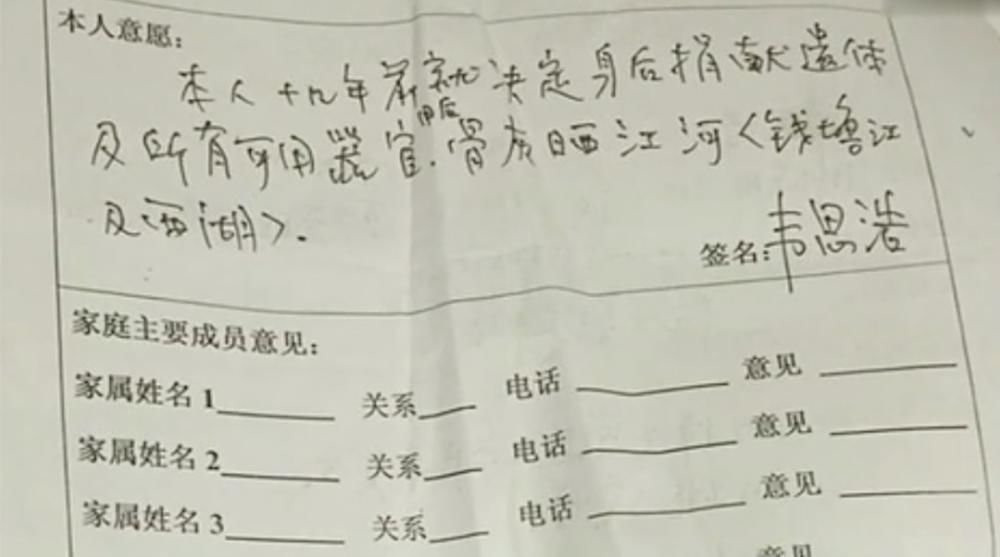 本人意愿：
本人十九年前就决定身后捐献遗体
及所有可用器官.用后骨灰晒江河<钱塘江
及西湖>.
签名:韦思浩
家庭主要成员意见：
家属姓名1______ 关系____ 电话________ 意见________
家属姓名2______ 关系____ 电话________ 意见________
家属姓名3______ 关系____ 电话________ 意见________
意见